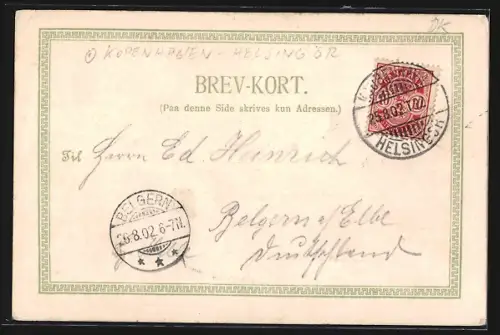 DK
KOPENHAGEN - HELSINGÖR
BREV-KORT.
(Paa denne Side skrives kun Adressen.)
HELSINGØR
Til Herrn Ed. Heinrich
BELGERN
26.8.02 6-7N.
* * *
Belgern a/Elbe
Deutschland